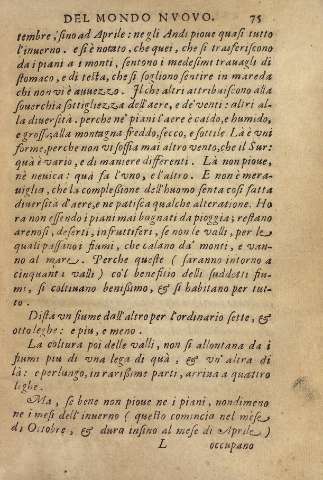 DEL MONDO NVOVO. 75
tembre, sino ad Aprile: ne gli Andi piove quasi tutto
l'inverno. e si è notato, che quei, che si trasferiscono
da i piani a i monti, sentono i medesimi travagli di
stomaco, e di testa, che si sogliono sentire in mare da
chi non vi è avvezzo. Il che altri attribuiscono alla
soverchia sottigliezza dell'aere, e de' venti: altri al-
la diversità. perche ne' piani l'aere è caldo, e humido,
e grosso; alla montagna freddo, secco, e sottile. Là è uni
forme, perche non vi soffia mai altro vento, che il Sur:
quà è vario, e di maniere differenti. Là non piove,
nè nevica: quà fa l'uno, e l'altro. E non è mera-
viglia, che la complessione dell'huomo senta così fatta
diversità d'aere, e ne patisca qualche alteratione. Ho
ra non essendo i piani mai bagnati da pioggia; restano
arenosi, deserti, infruttiferi, se non le valli, per le
quali passano i fiumi, che calano da' monti, e van-
no al mare. Perche queste (saranno intorno a
cinquanta valli) co'l beneficio delli suddetti fiu-
mi, si coltivano benissimo, & si habitano per tut-
to.
Dista un fiume dall'altro per l'ordinario sette, &
otto leghe: e piu, e meno.
La coltura poi delle valli, non si allontana da i
fiumi piu di una lega di quà, & un'altra di
là: e per lungo, in rarissime parti, arriva a quattro
leghe.
Ma, se bene non piove ne i piani, nondimeno
ne i mesi dell'inverno (questo comincia nel mese
di Ottobre, & dura insino al mese di Aprile)
L occupano